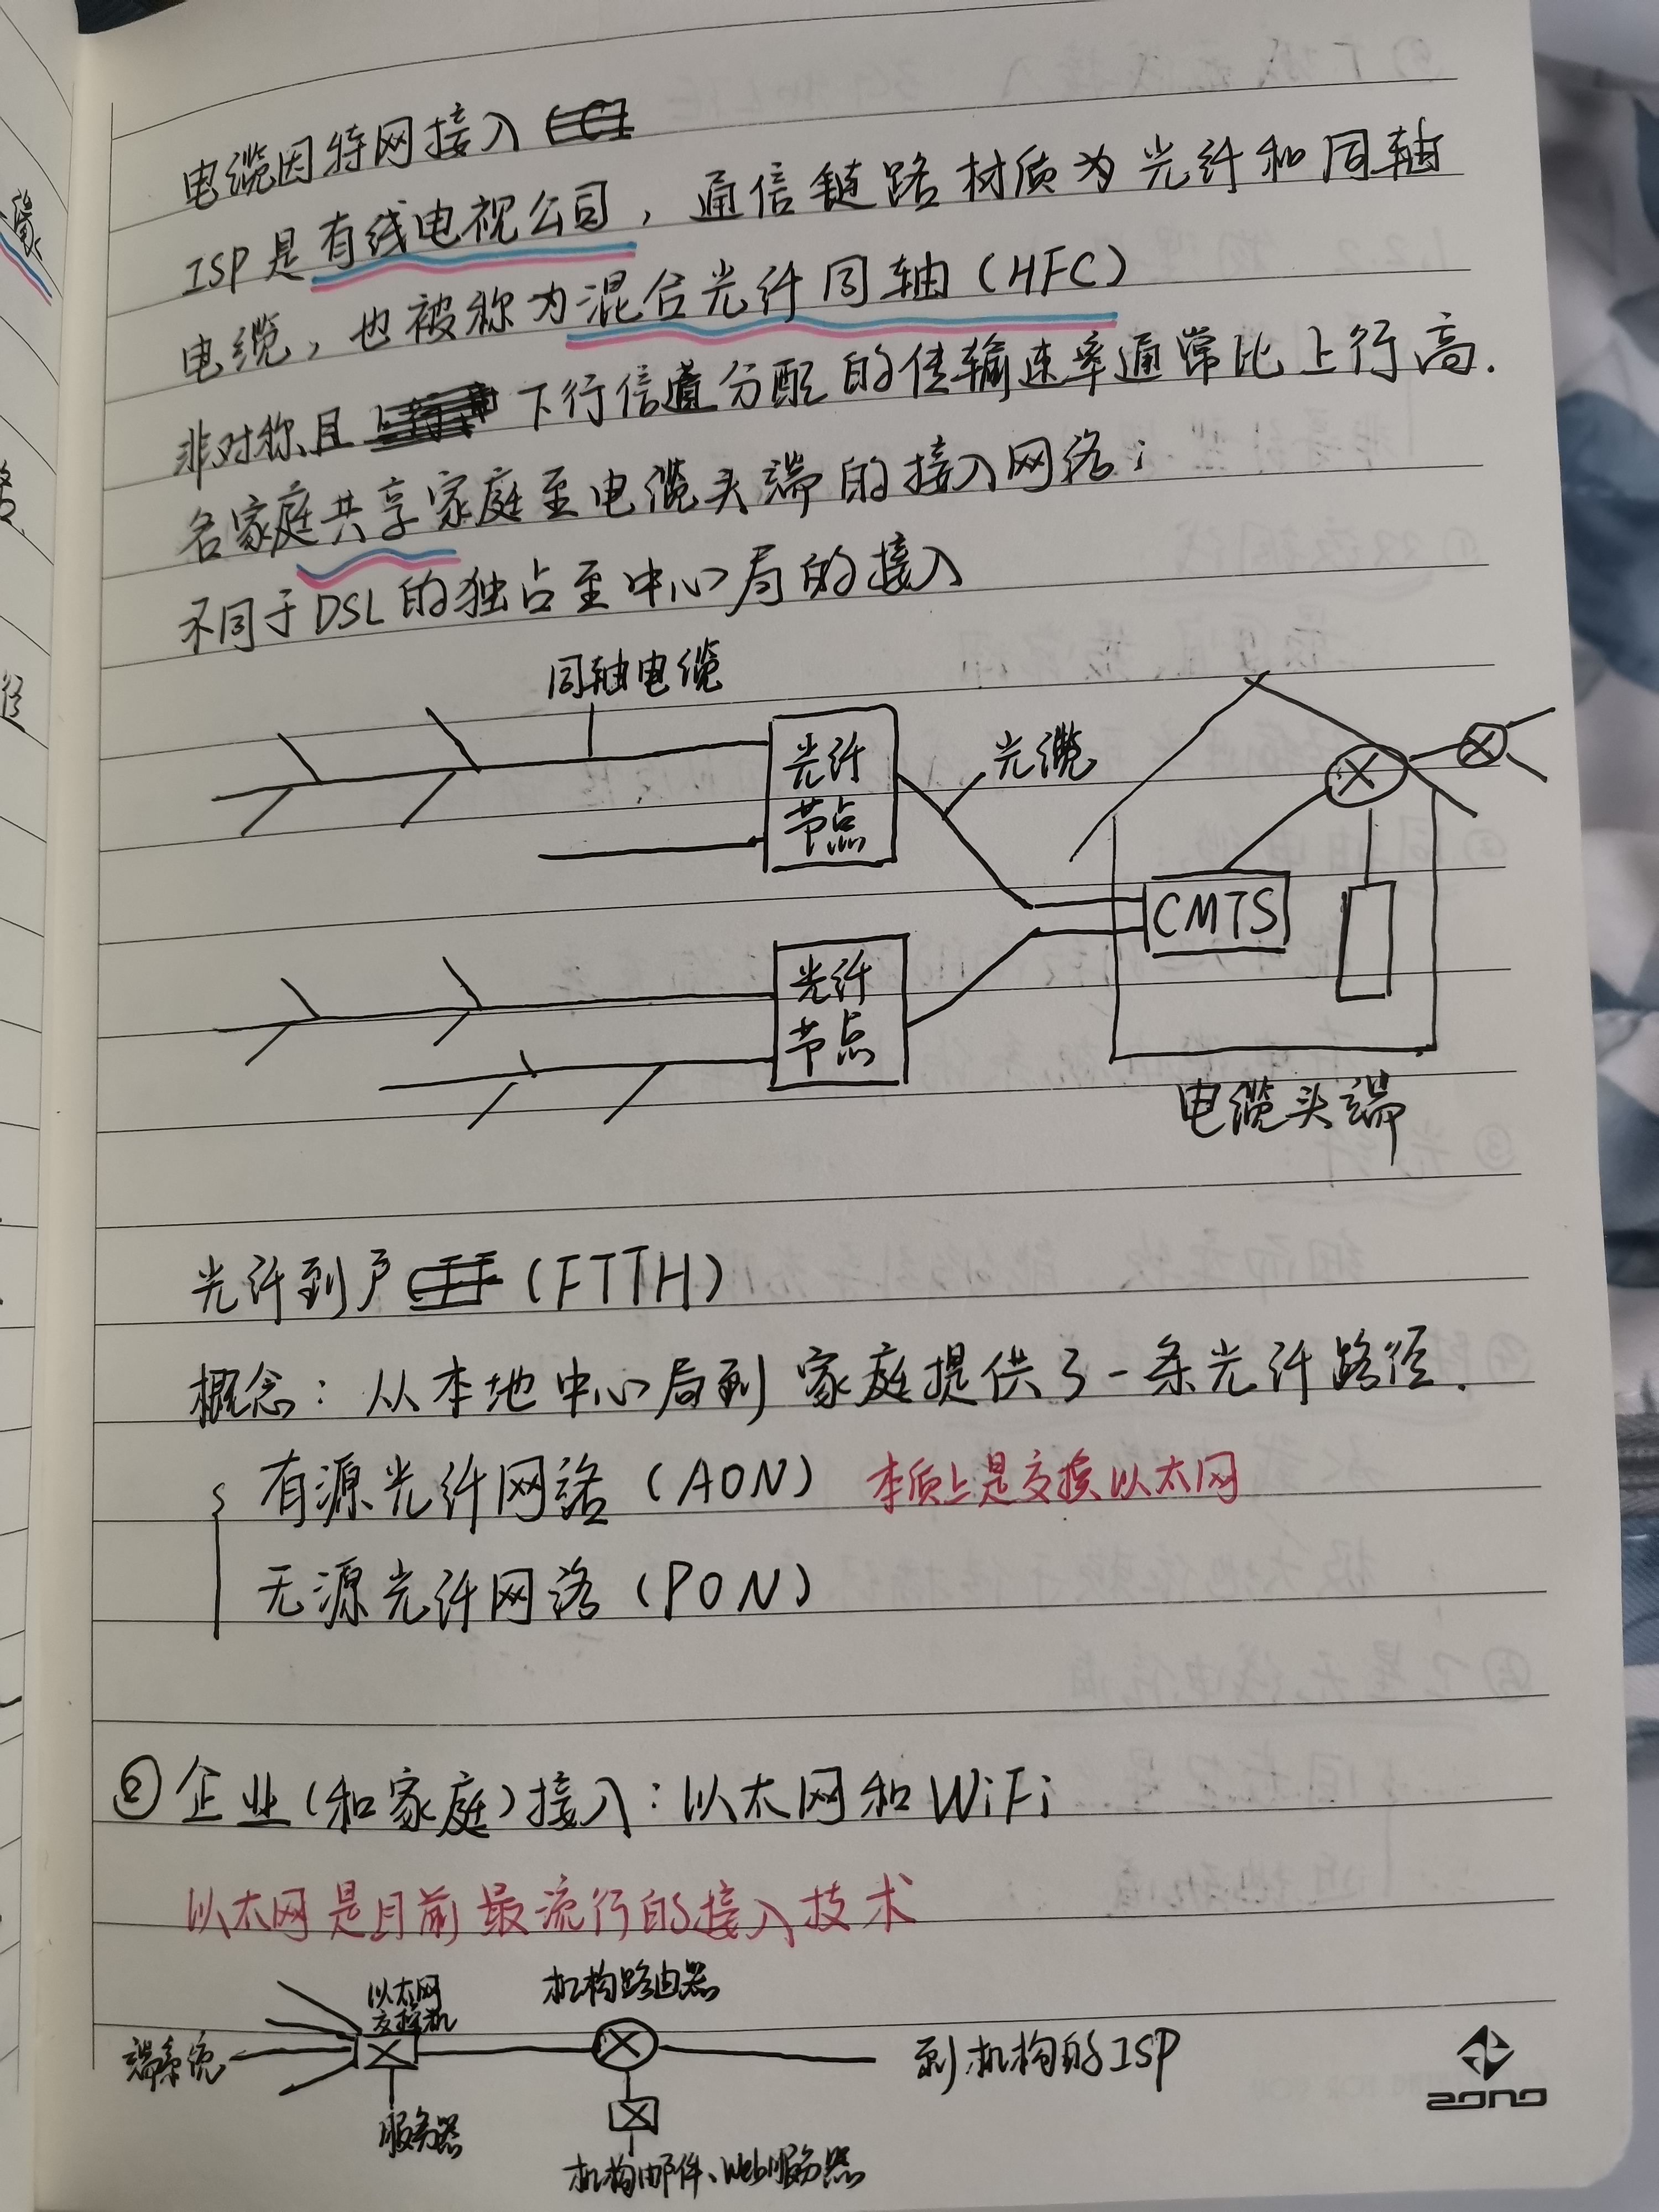 电缆因特网接入
ISP是有线电视公司，通信链路材质为光纤和同轴
电缆，也被称为混合光纤同轴（HFC）
非对称且 下行信道分配的传输速率通常比上行高．
各家庭共享家庭至电缆头端的接入网络；
不同于DSL的独占至中心局的接入
同轴电缆
光纤
节点
光缆
CMTS
光纤
节点
电缆头端
光纤到户（FTTH）
概念：从本地中心局到家庭提供了一条光纤路径．
有源光纤网络（AON） 本质上是交换以太网
无源光纤网络（PON）
② 企业（和家庭）接入：以太网和WiFi
以太网是目前最流行的接入技术
以太网
交换机
机构路由器
端系统
到机构的ISP
服务器
机构邮件、Web服务器